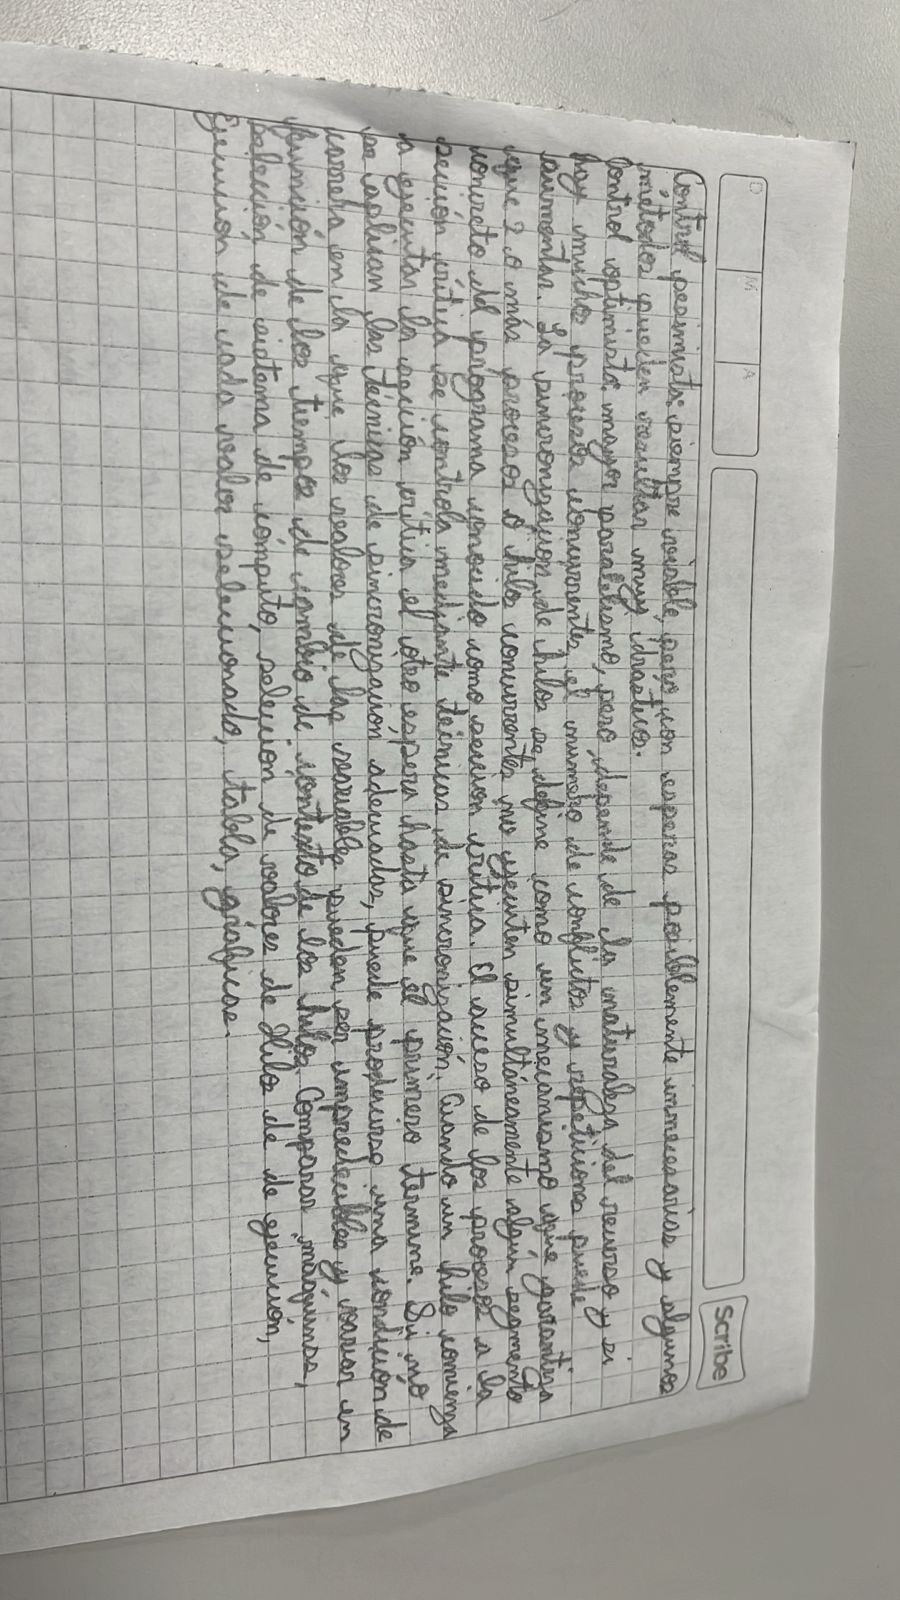 D M A
Scribe
Control pesimista: siempre viable, pero con esperas posiblemente innecesarias y algunos
métodos pueden resultar muy drastico.
Control optimista: mayor paralelismo, pero, depende de la naturaleza del recurso y si
hay mucho procesos concurrentes, el numero de conflictos y repeticiones puede
aumentar. La sincronización de hilos se define como un mecanismo que garantiza
que 2 o más procesos o hilo concurrentes no ejecuten simultáneamente algun segmento
concreto del programa conocido como seccion critica. El acceso de los procesos a la
sección critica se controla mediante técnicas de sincronización. Cuando un hilo comienza
a ejecutar la sección critica el otro espera hasta que el primero termine. Si no
se aplican las técnicas de sincronización adecuadas, puede producirse una condicion de
carrera en la que los valores de las variables pueden ser impredecibles y variar en
función de los tiempos de cambio de contexto de los hilos. Comparar máquinas,
selección de sistema de cómputo, seleccion de valores de Hilos de de ejecucion,
Ejecucion de cada valor seleccionado, tabla, gráficas.